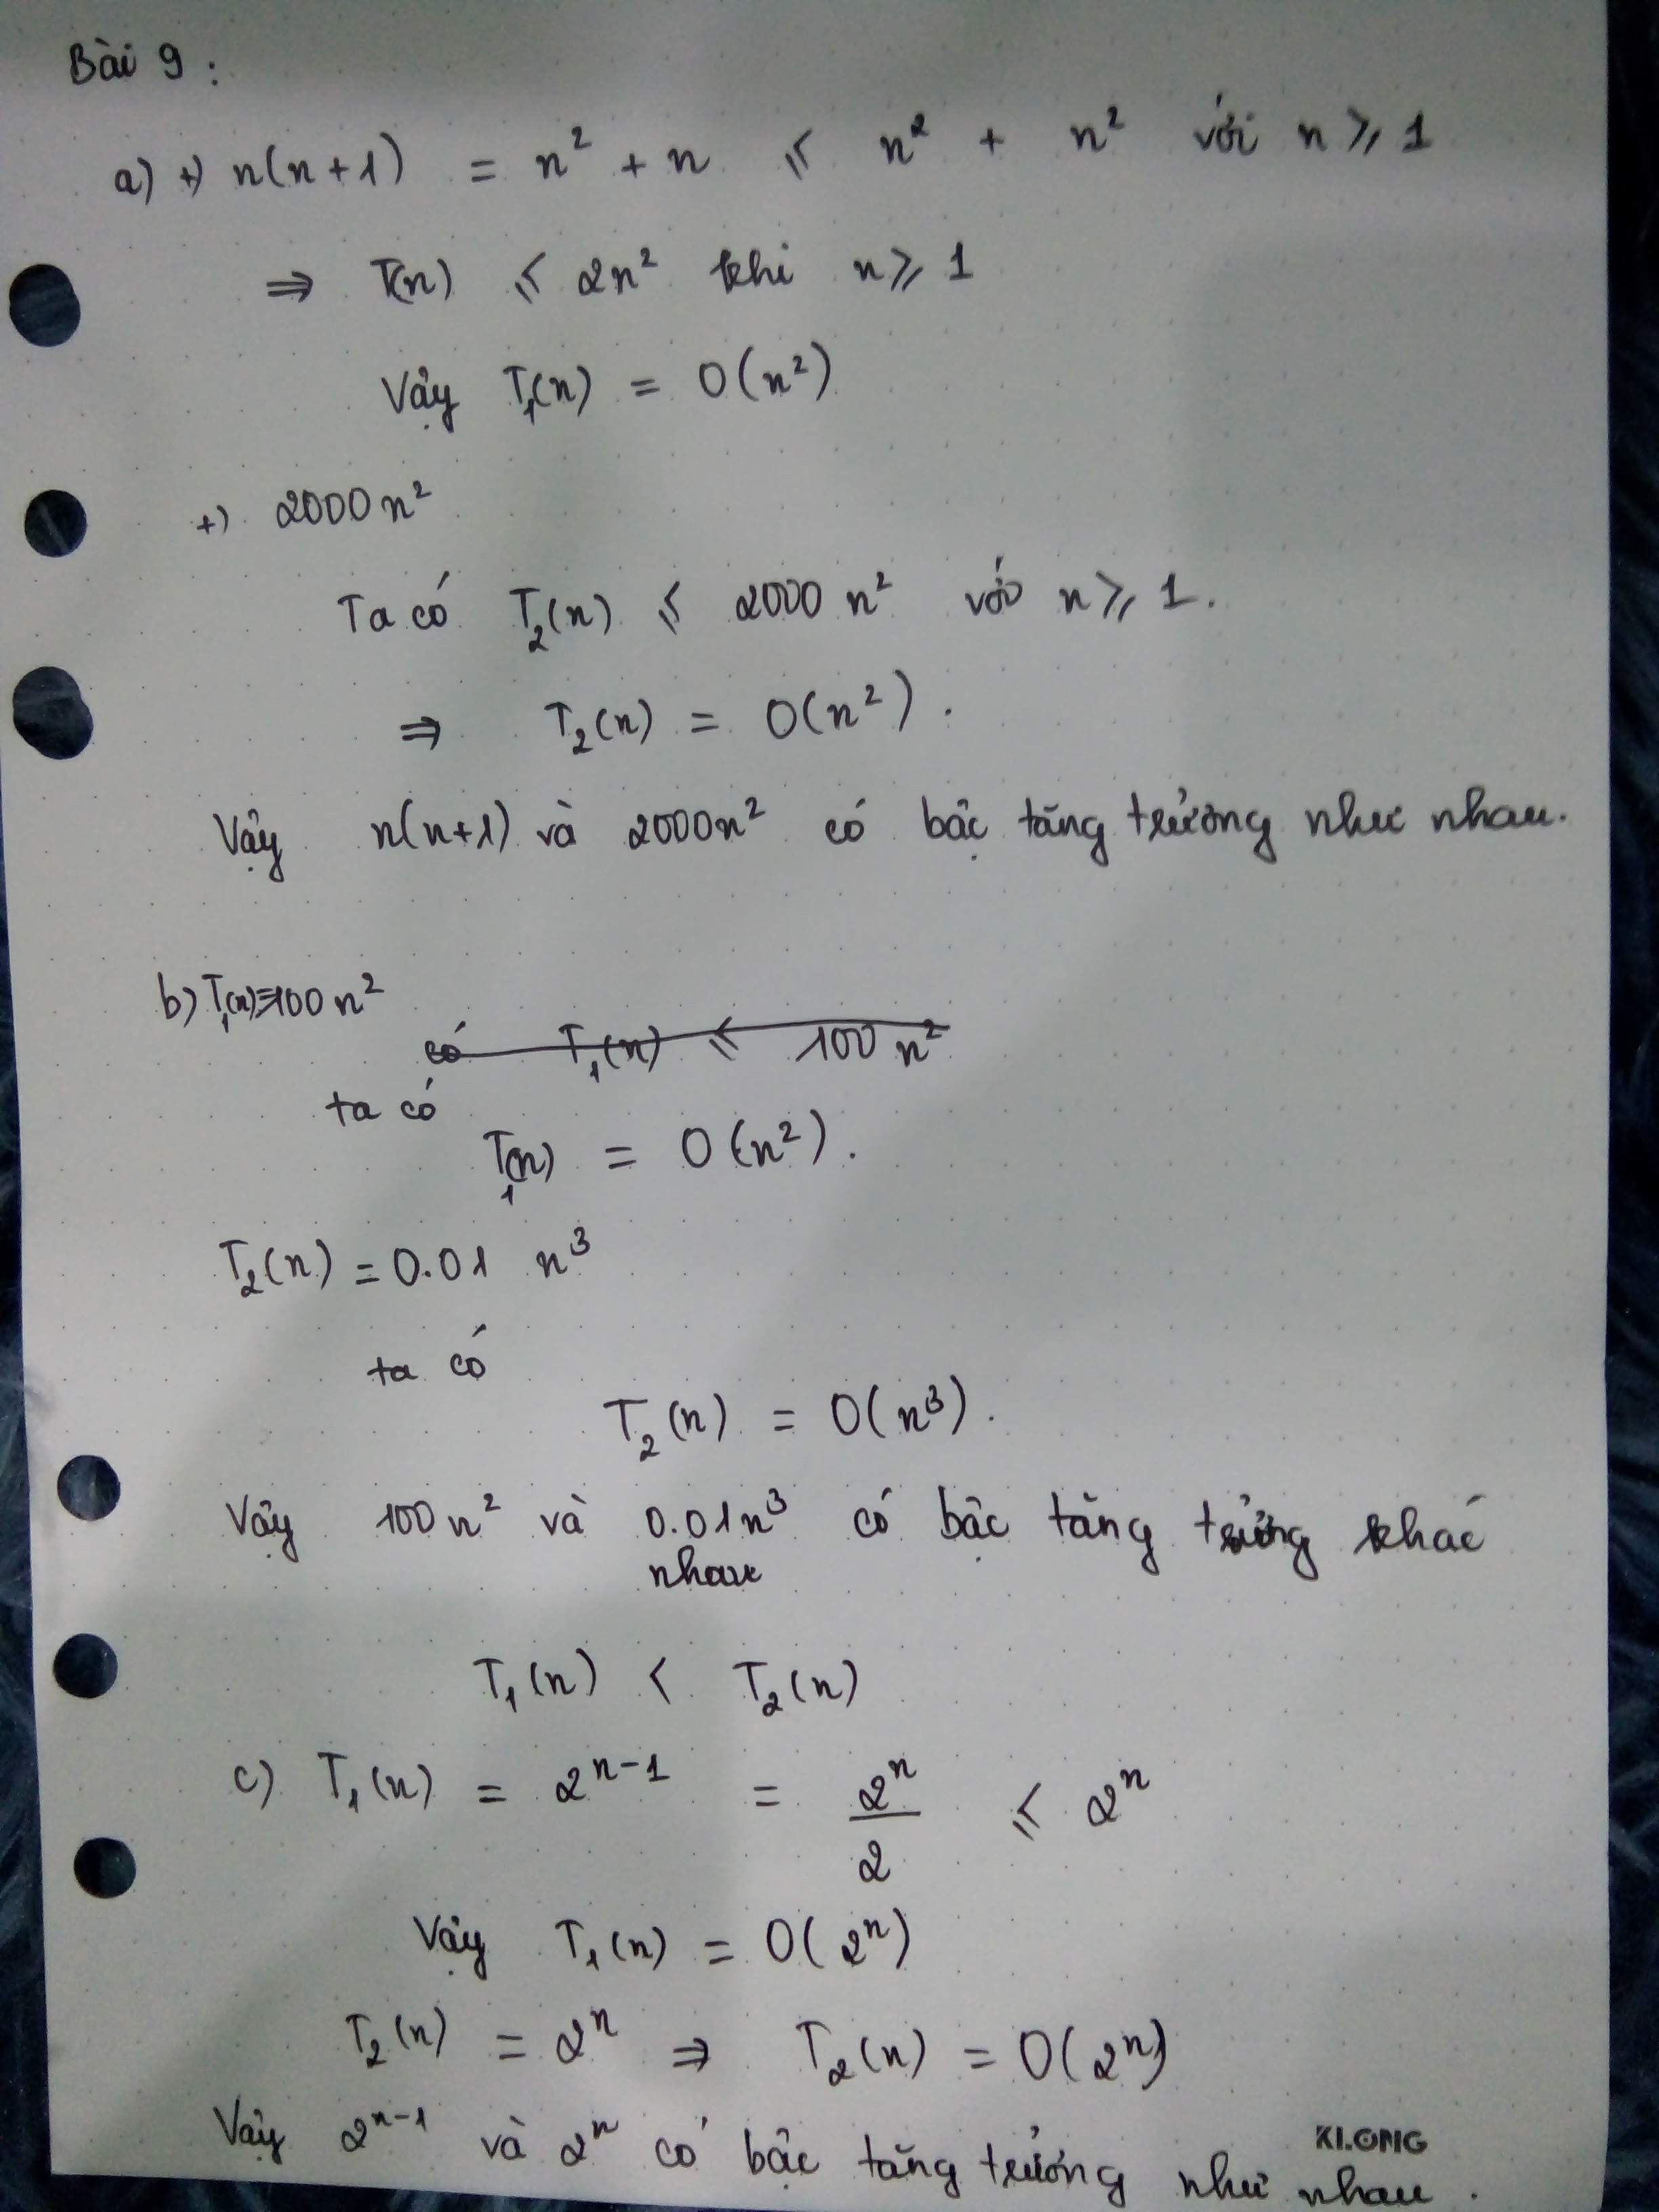 Bài 9 :
a) +) n(n+1) = n² + n ≤ n² + n² với n ≥ 1
⇒ T(n) ≤ 2n² khi n ≥ 1
Vậy T₁(n) = O(n²)
+) 2000n²
Ta có T₂(n) ≤ 2000 n² với n ≥ 1.
⇒ T₂(n) = O(n²).
Vậy n(n+1) và 2000n² có bậc tăng trưởng như nhau.
b) T₁(n)=100n²
có T₁(n) ≤ 100 n²
ta có
T₁(n) = O(n²).
T₂(n) = 0.01 n³
ta có
T₂(n) = O(n³).
Vậy 100n² và 0.01n³ có bậc tăng trưởng khác
nhau
T₁(n) < T₂(n)
c) T₁(n) = 2ⁿ⁻¹ = 2ⁿ/2 ≤ 2ⁿ
Vậy T₁(n) = O(2ⁿ)
T₂(n) = 2ⁿ ⇒ T₂(n) = O(2ⁿ)
Vậy 2ⁿ⁻¹ và 2ⁿ có bậc tăng trưởng như nhau.
KLONG